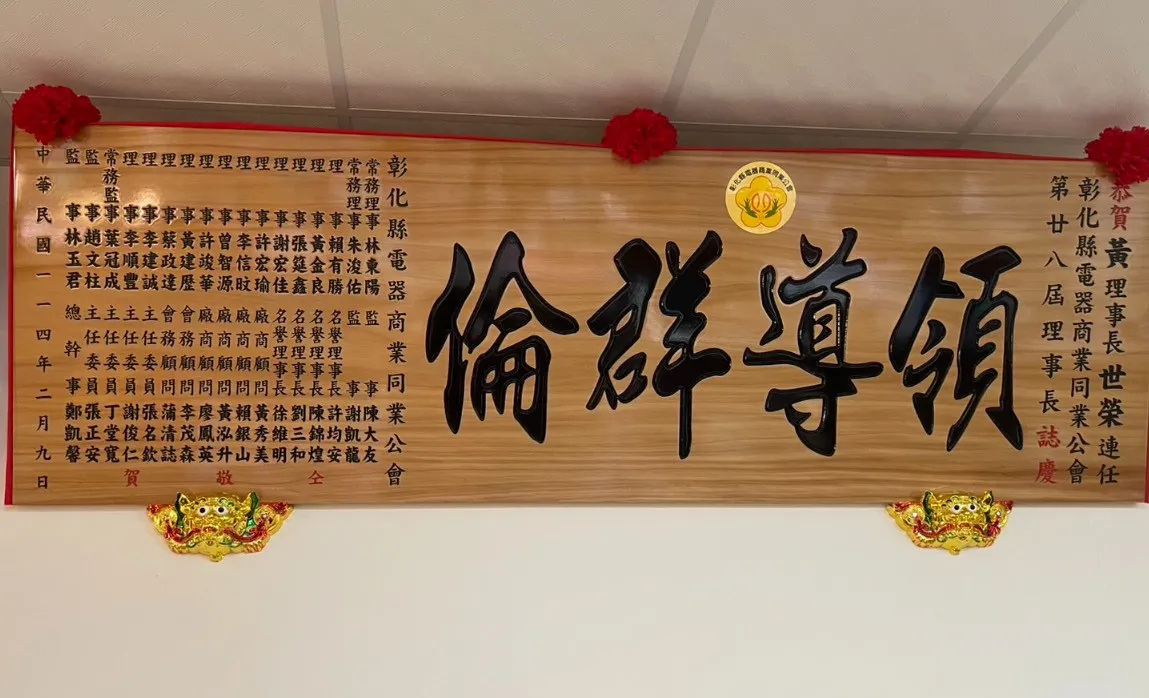 恭賀 黃理事長世榮連任
彰化縣電器商業同業公會
第廿八屆理事長誌慶
彰化縣電器商業同業公會
領導群倫
彰化縣電器商業同業公會
常務理事林東陽 監事陳大友
常務理事朱浚佑 監事謝凱龍
理事賴有勝 名譽理事長許均安
理事黃金良 名譽理事長陳錦煌
理事張筵鑫 名譽理事長劉三和
理事謝宏佳 名譽理事長徐維明
理事許宏瑜 廠商顧問黃秀美
理事李信旼 廠商顧問賴銀山
理事曾智源 廠商顧問黃泓升
理事許竣華 廠商顧問廖鳳英
理事黃建歷 會務顧問李茂森
理事蔡政達 會務顧問蒲清誌
理事李建誠 主任委員張名欽
理事李順豐 主任委員謝俊仁
常務監事葉冠成 主任委員丁堂寬
監事趙文柱 主任委員張正安
監事林玉君 總幹事鄭凱馨
仝敬賀
中華民國一一四年二月九日